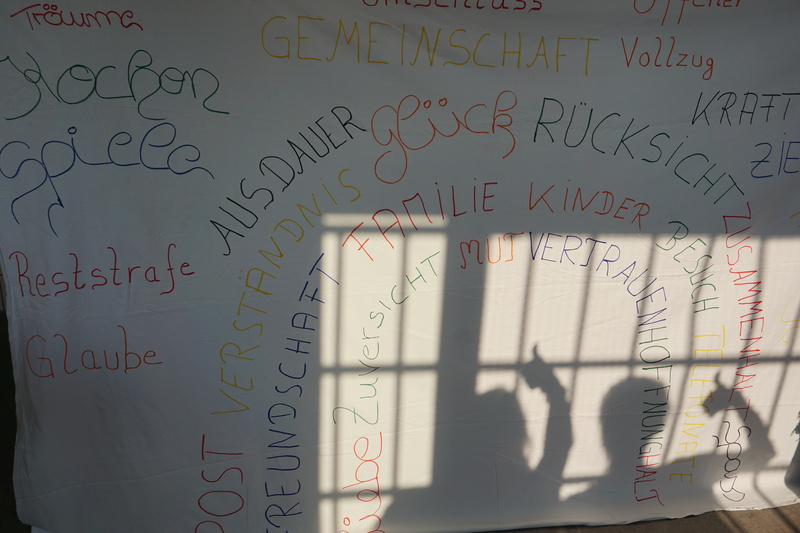 Träume
Offener
GEMEINSCHAFT
Vollzug
Kochen
KRAFT
Spiele
AUSDAUER
glück
RÜCKSICHT
VERSTÄNDNIS
FAMILIE
KINDER
BESUCH
ZUSAMMENHALT
Reststrafe
FREUNDSCHAFT
Zuversicht
MUT
VERTRAUEN
HOFFNUNG
HALT
Glaube
TELEFONATE
Spass
POST